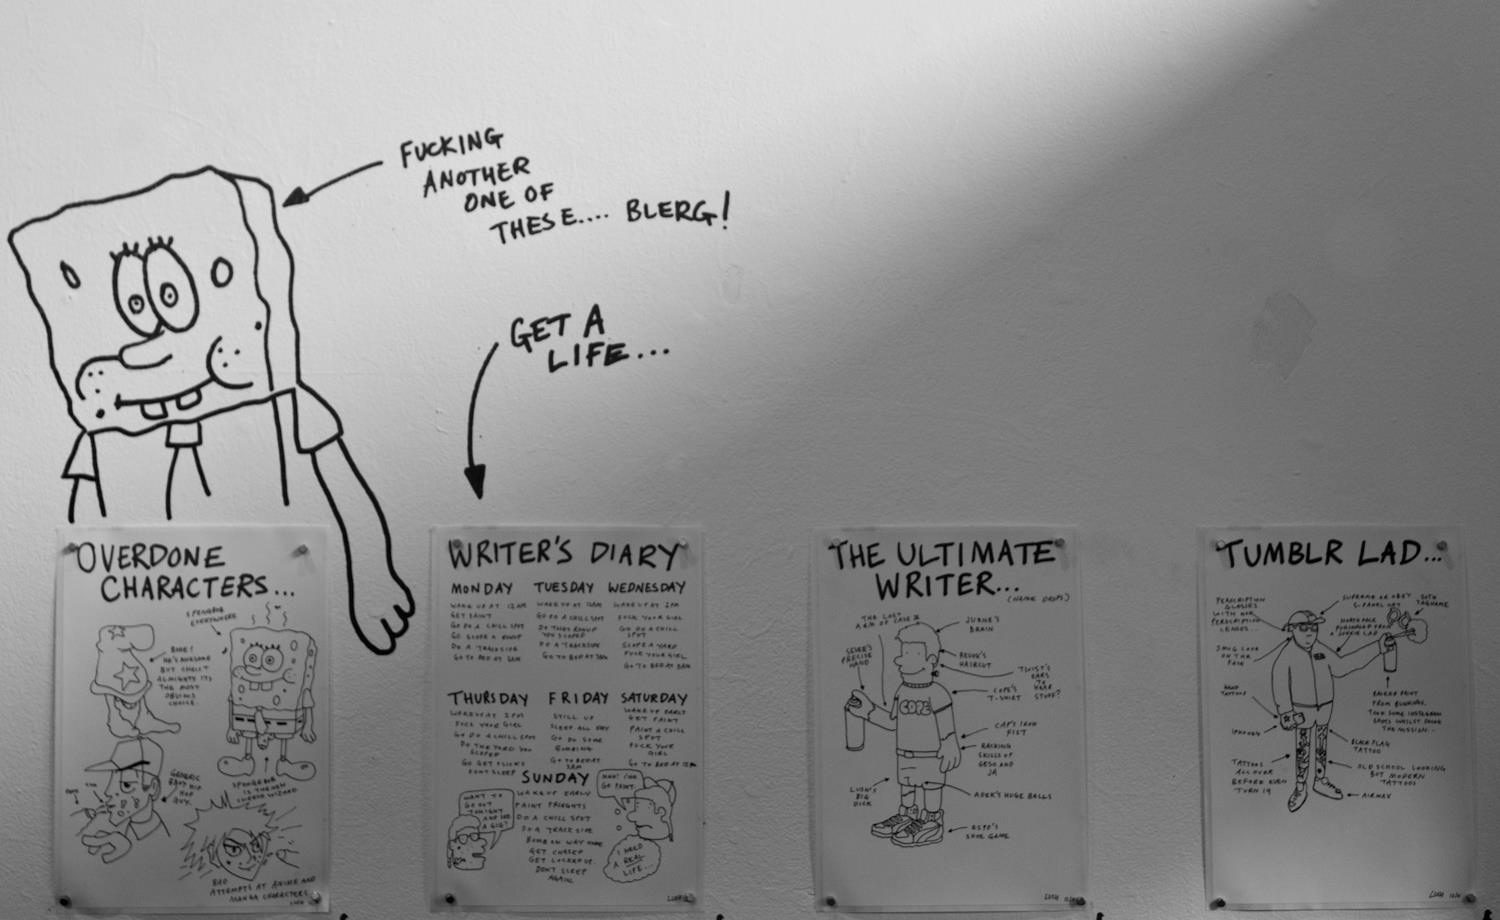 FUCKING
ANOTHER
ONE OF
THESE.... BLERG!
GET A
LIFE...
OVERDONE
CHARACTERS...
SPONGEBOB
EVERYWHERE
HE'S AWESOME
BUT CHRIST
ALMIGHTY ITS
THE MOST
OBVIOUS
CHOICE.
GENERIC
BAD
ATTEMPTS AT ANIME AND
MANGA CHARACTERS...
WRITER'S DIARY
MONDAY
WAKE UP AT 12AM
GET PAINT
GO DO A CHILL SPOT
GO SCOPE A ROWUP
DO A TRACKSIDE
GO TO BED AT 3AM
TUESDAY
WAKE UP AT 12AM
GO DO A CHILL SPOT
DO THAT ROWUP
YOU SCOPED
DO A TRACKSIDE
GO TO BED AT 3AM
WEDNESDAY
WAKE UP AT 2PM
FUCK YOUR GIRL
GO DO A CHILL
SPOT
SCOPE A YARD
FUCK YOUR GIRL
GO TO BED AT 3AM
THURSDAY
WAKE UP AT 2PM
FUCK YOUR GIRL
GO DO A CHILL SPOT
DO THE YARD YOU
SCOPED
GO GET FLICKS
DON'T SLEEP
FRIDAY
STILL UP
SLEEP ALL DAY
GO DO SOME
BOMBING
GO TO BED AT
3AM
SATURDAY
WAKE UP EARLY
GET PAINT
PAINT A CHILL
SPOT
FUCK YOUR
GIRL
GO TO BED AT 12AM
SUNDAY
WAKE UP EARLY
PAINT FREIGHTS
DO A CHILL SPOT
DO A TRACKSIDE
BOMB ON WAY HOME
GET CHASED
GET LOCKED UP.
DON'T SLEEP
AGAIN.
WANT TO
GO OUT
TONIGHT
AND SEE
A GIG?
NAH! I'MA
GO PAINT.
I NEED
A REAL
LIFE...
THE ULTIMATE
WRITER...
(NAME DROPS)
THE LOST
ARM OF CASE 2
JURNE'S
BRAIN
PRECISE
HAND
REVOK'S
HAIRCUT
TWIST'S
EARS
TO
HEAR
STUFF?
COPE'S
T-SHIRT
CAP'S IRON
FIST
RACKING
SKILLS OF
GESO AND
JA
LUSH'S
BIG
DICK
ADEK'S HUGE BALLS
SHOE GAME
TUMBLR LAD...
PERSCRIPTION
GLASSES
WITH NON
PERSCRIPTION
LENSES...
SUPREME OR OBEY
5 PANEL HAT
TAGNAME
SMUG LOOK
ON THE
FACE
HAND
TATTOOS
IPHONE 4
FROM BUNNINGS.
TOOK SOME INSTAGRAM
SPOTS WHILST DOING
THE MISSION...
BLACK FLAG
TATTOO
TATTOOS
ALL OVER
BEFORE EVEN
TURN 19
OLD SCHOOL LOOKING
BUT MODERN
TATTOOS
AIRMAX